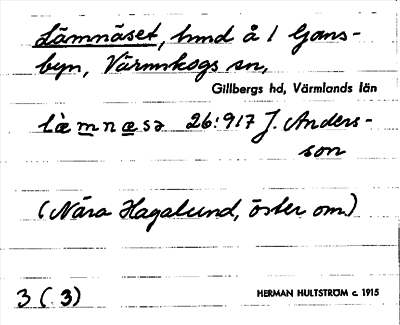 Lämnäset, hmd å 1 Gans-
byn, Värmskogs sn,
Gillbergs hd, Värmlands län
læ̀mnæsə 26:917 J. Anders-
son
(Nära Hagalund, öster om.)
3 (3)
HERMAN HULTSTRÖM c. 1915